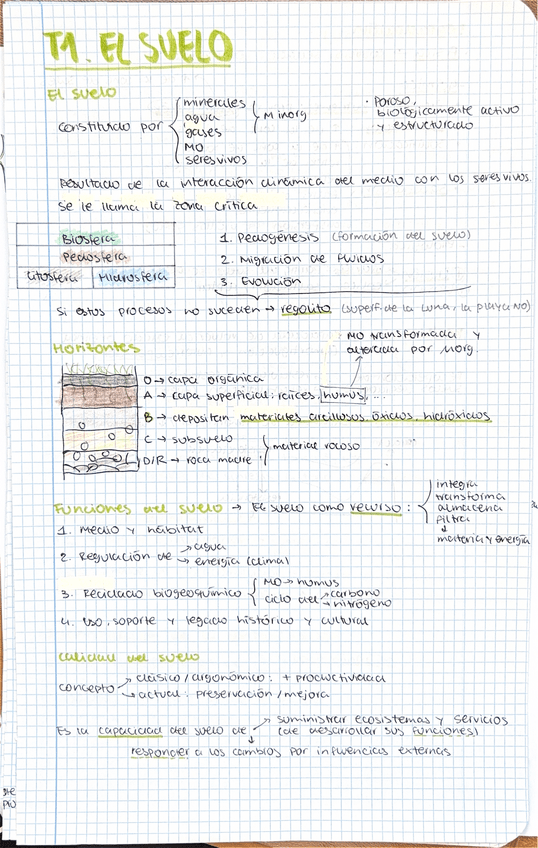 T1. EL SUELO
El suelo
constituido por
minerales
agua
gases
MO
seres vivos
M inorg
· Poroso,
biológicamente activo
y estructurado
Resultado de la interacción dinámica del medio con los seres vivos.
Se le llama la zona crítica
Biosfera
Pedosfera
Litosfera
Hidrosfera
1. Pedogénesis (formación del suelo)
2. Migración de fluidos
3. Evolución
Si estos procesos no suceden → regolito (superf. de la luna, la playa NO)
MO transformada y
alterada por Morg.
Horizontes
O → capa orgánica
A → capa superficial: raíces, humus, ...
B → depositan materiales arcillosos, óxidos, hidróxidos
C → subsuelo
D/R → roca madre
material rocoso
Funciones del suelo → El suelo como recurso:
integra
transforma
almacena
filtra
↓
materia y energía
1. Medio y hábitat
2. Regulación de
→ agua
→ energía (clima)
3. Reciclado biogeoquímico
MO → humus
ciclo del
→ carbono
→ nitrógeno
4. Uso, soporte y legado histórico y cultural
Calidad del suelo
concepto
→ clásico / argonómico: + productividad
→ actual: preservación / mejora
Es la capacidad del suelo de
→ suministrar ecosistemas y servicios
(de desarrollar sus funciones)
responder a los cambios por influencias externas